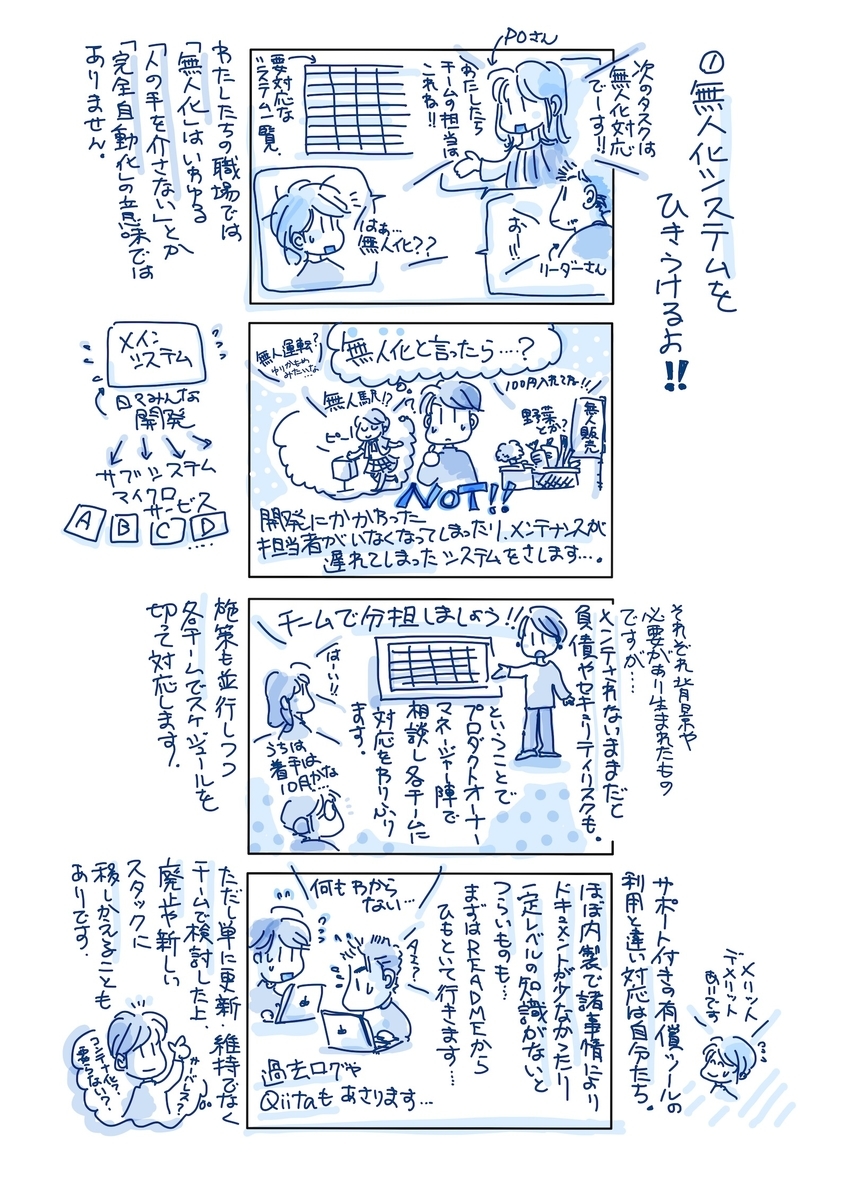 ①無人化システムを
ひきうけるよ!!
POさん
次のタスクは
無人化対応
でーす!!
わたしたち
チームの担当は
これね!!
要対応な
システム一覧
お一!!
リーダーさん
はぁ…
無人化??
わたしたちの職場では
「無人化」はいわゆる
「人の手を介さない」とか
「完全自動化」の意味では
ありません。
無人化と言ったら…?
100円入れてね!!
無人販売
野菜とか?
無人駅!?
ピー!
無人運転?
ゆりかもめ
みたいな
NOT!!
開発にかかわった
担当者がいなくなってしまったり、メンテナンスが
遅れてしまったシステムをさします…。
メイン
システム
日々みんな
開発
サブシステム
マイクロ
サービス
A B C D ....
それぞれ背景や
必要があり生まれたもの
ですが…
メンテされないままだと
負債やセキュリティリスクも。
チームで分担しましょう!!
ということで
プロダクトオーナー
マネージャー陣で
相談し各チームに
対応をわりふり
ます。
はーい!!
うちは
着手は
10月かな
施策も並行しつつ
各チームでスケジュールを
切って対応します!
サポート付きの有償ツールの
利用と違い対応は自分たち。
メリット
デメリット
ありです
ほぼ内製で諸事情により
ドキュメントが少なかったり
一定レベルの知識がないと
つらいものも…
まずはREADMEから
ひもといて行きます…
何もわから
ない…
過去ログや
Qiitaもあさります…
ただし単に更新・維持でなく
チームで検討した上、
廃止や新しい
スタックに
移しかえることも
ありです。
サーバレス?
コンテナ化?